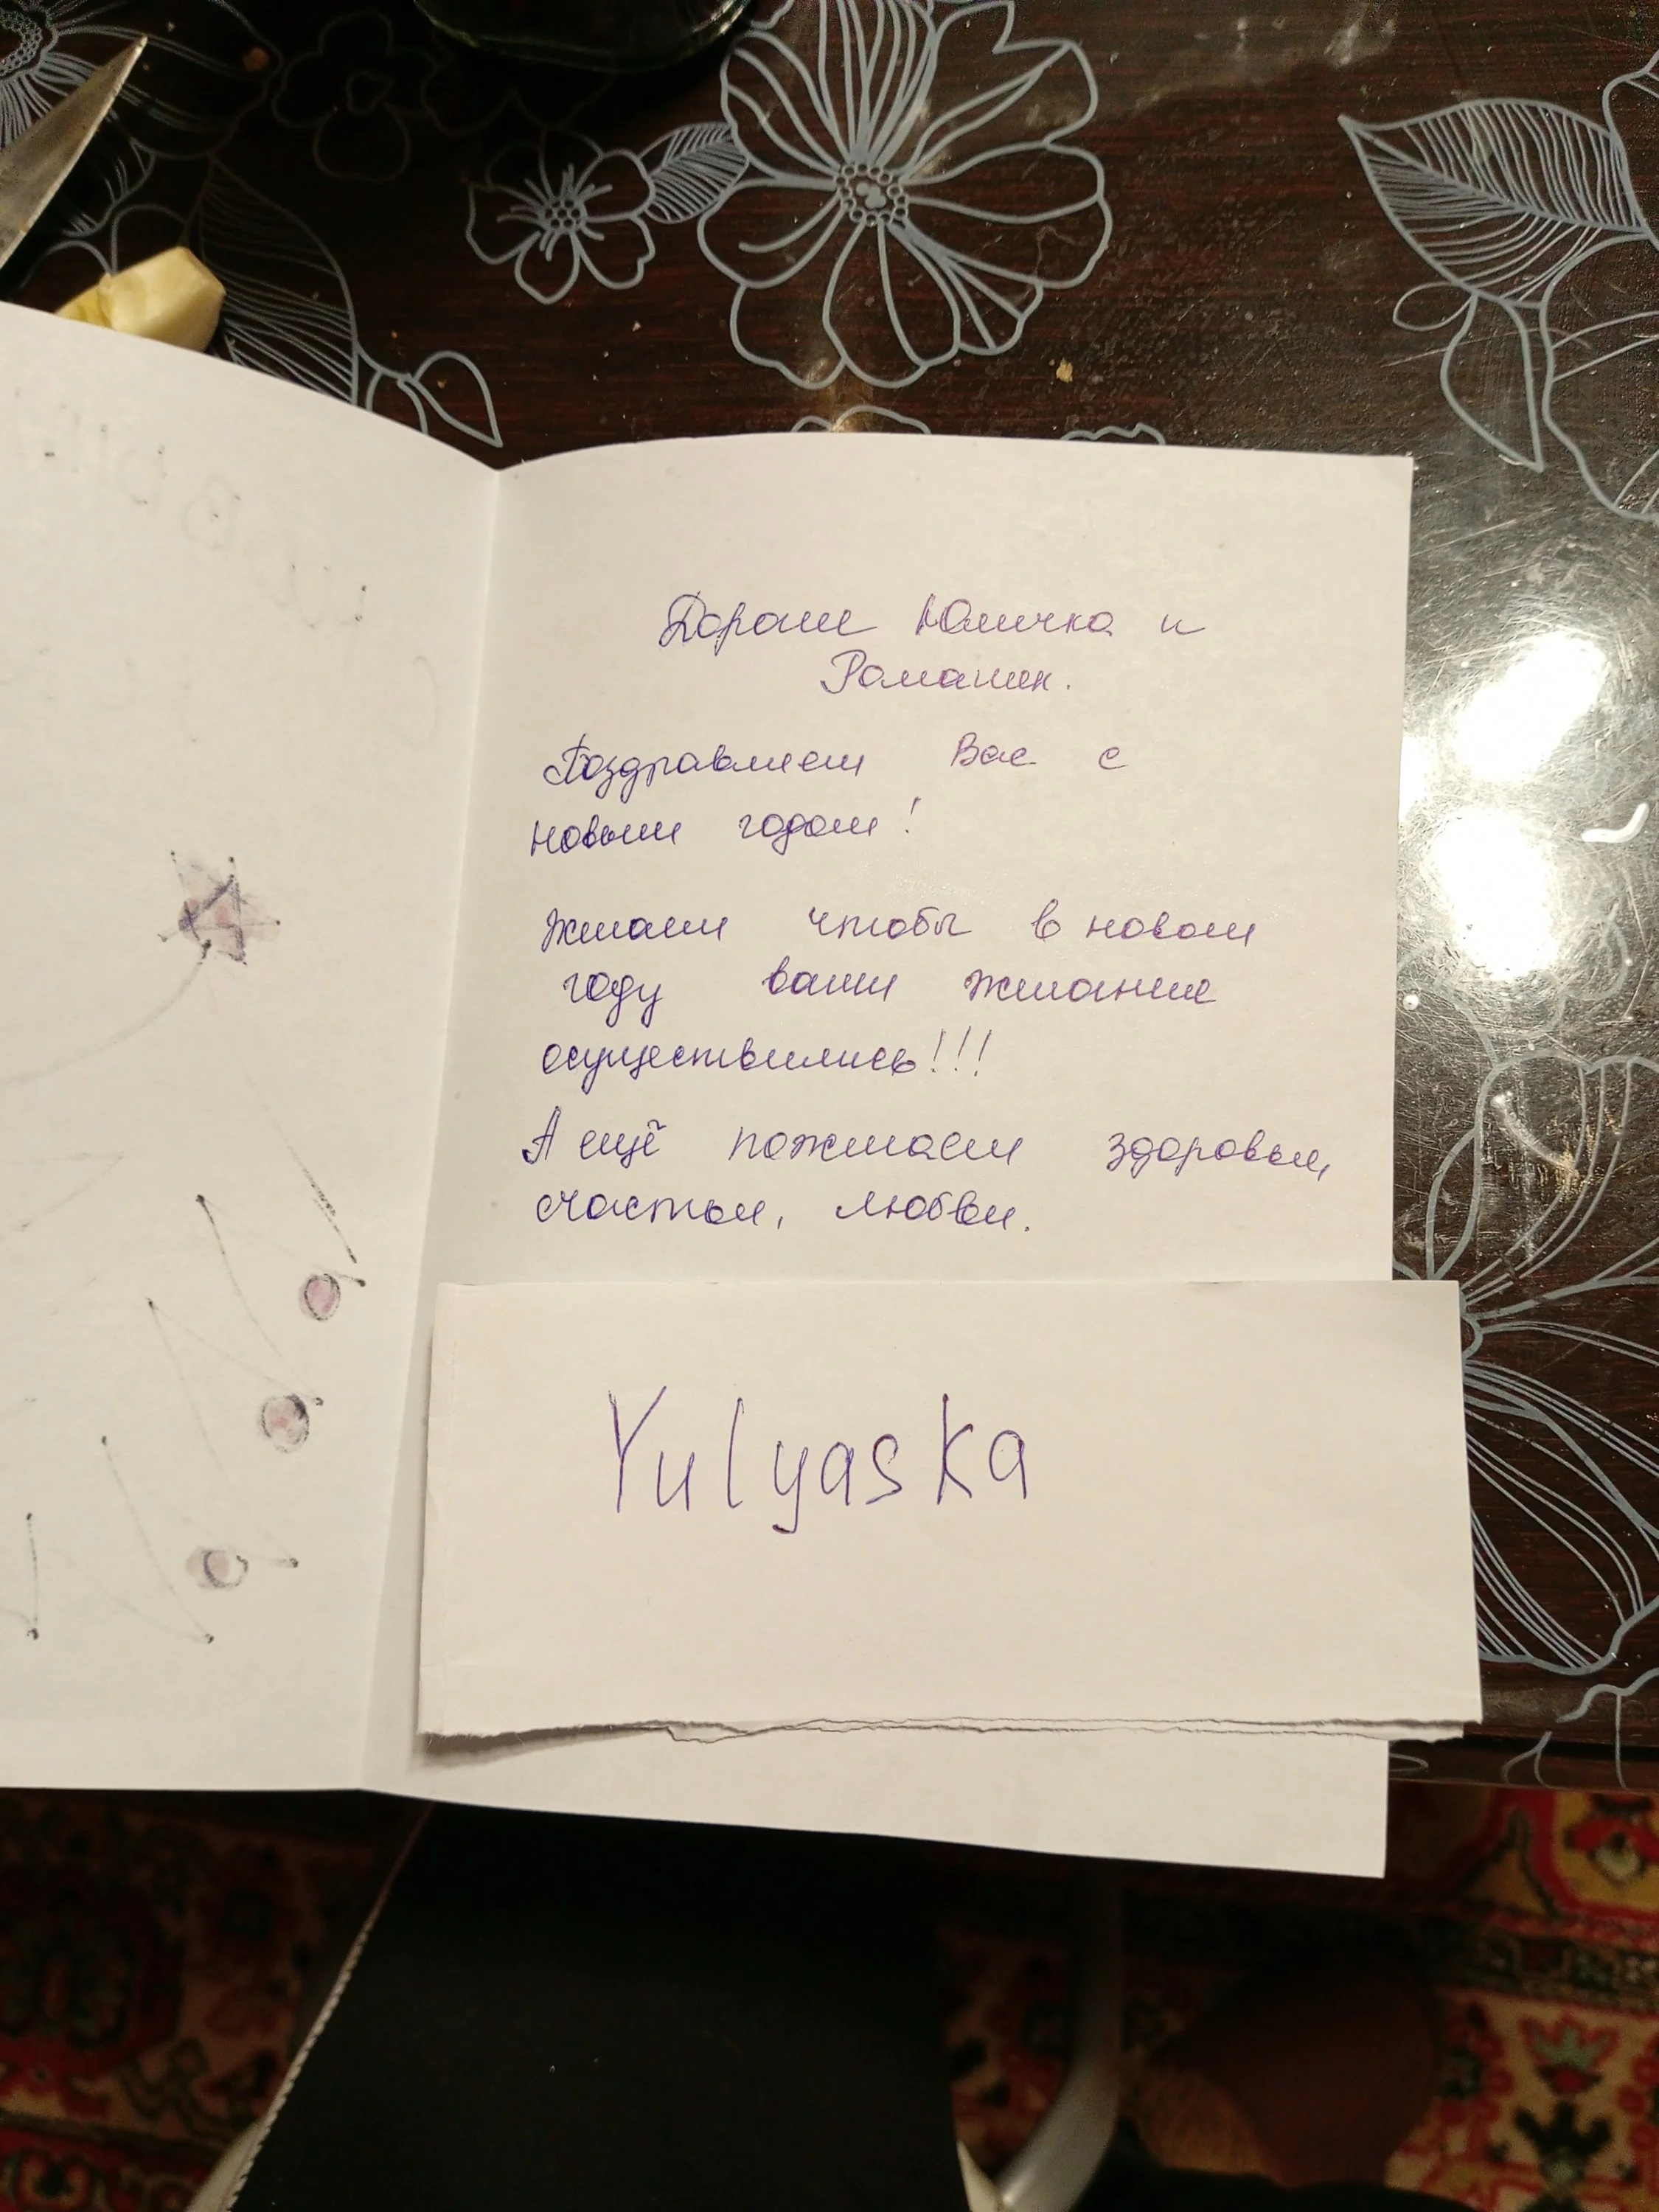 Дорогие Юличка и
Романчик.
Поздравляем Вас с
новым годом!
Желаем чтобы в новом
году ваши желание
осуществились!!!
А ещё пожелаем здоровья,
счастья, любви.
Yulyaska